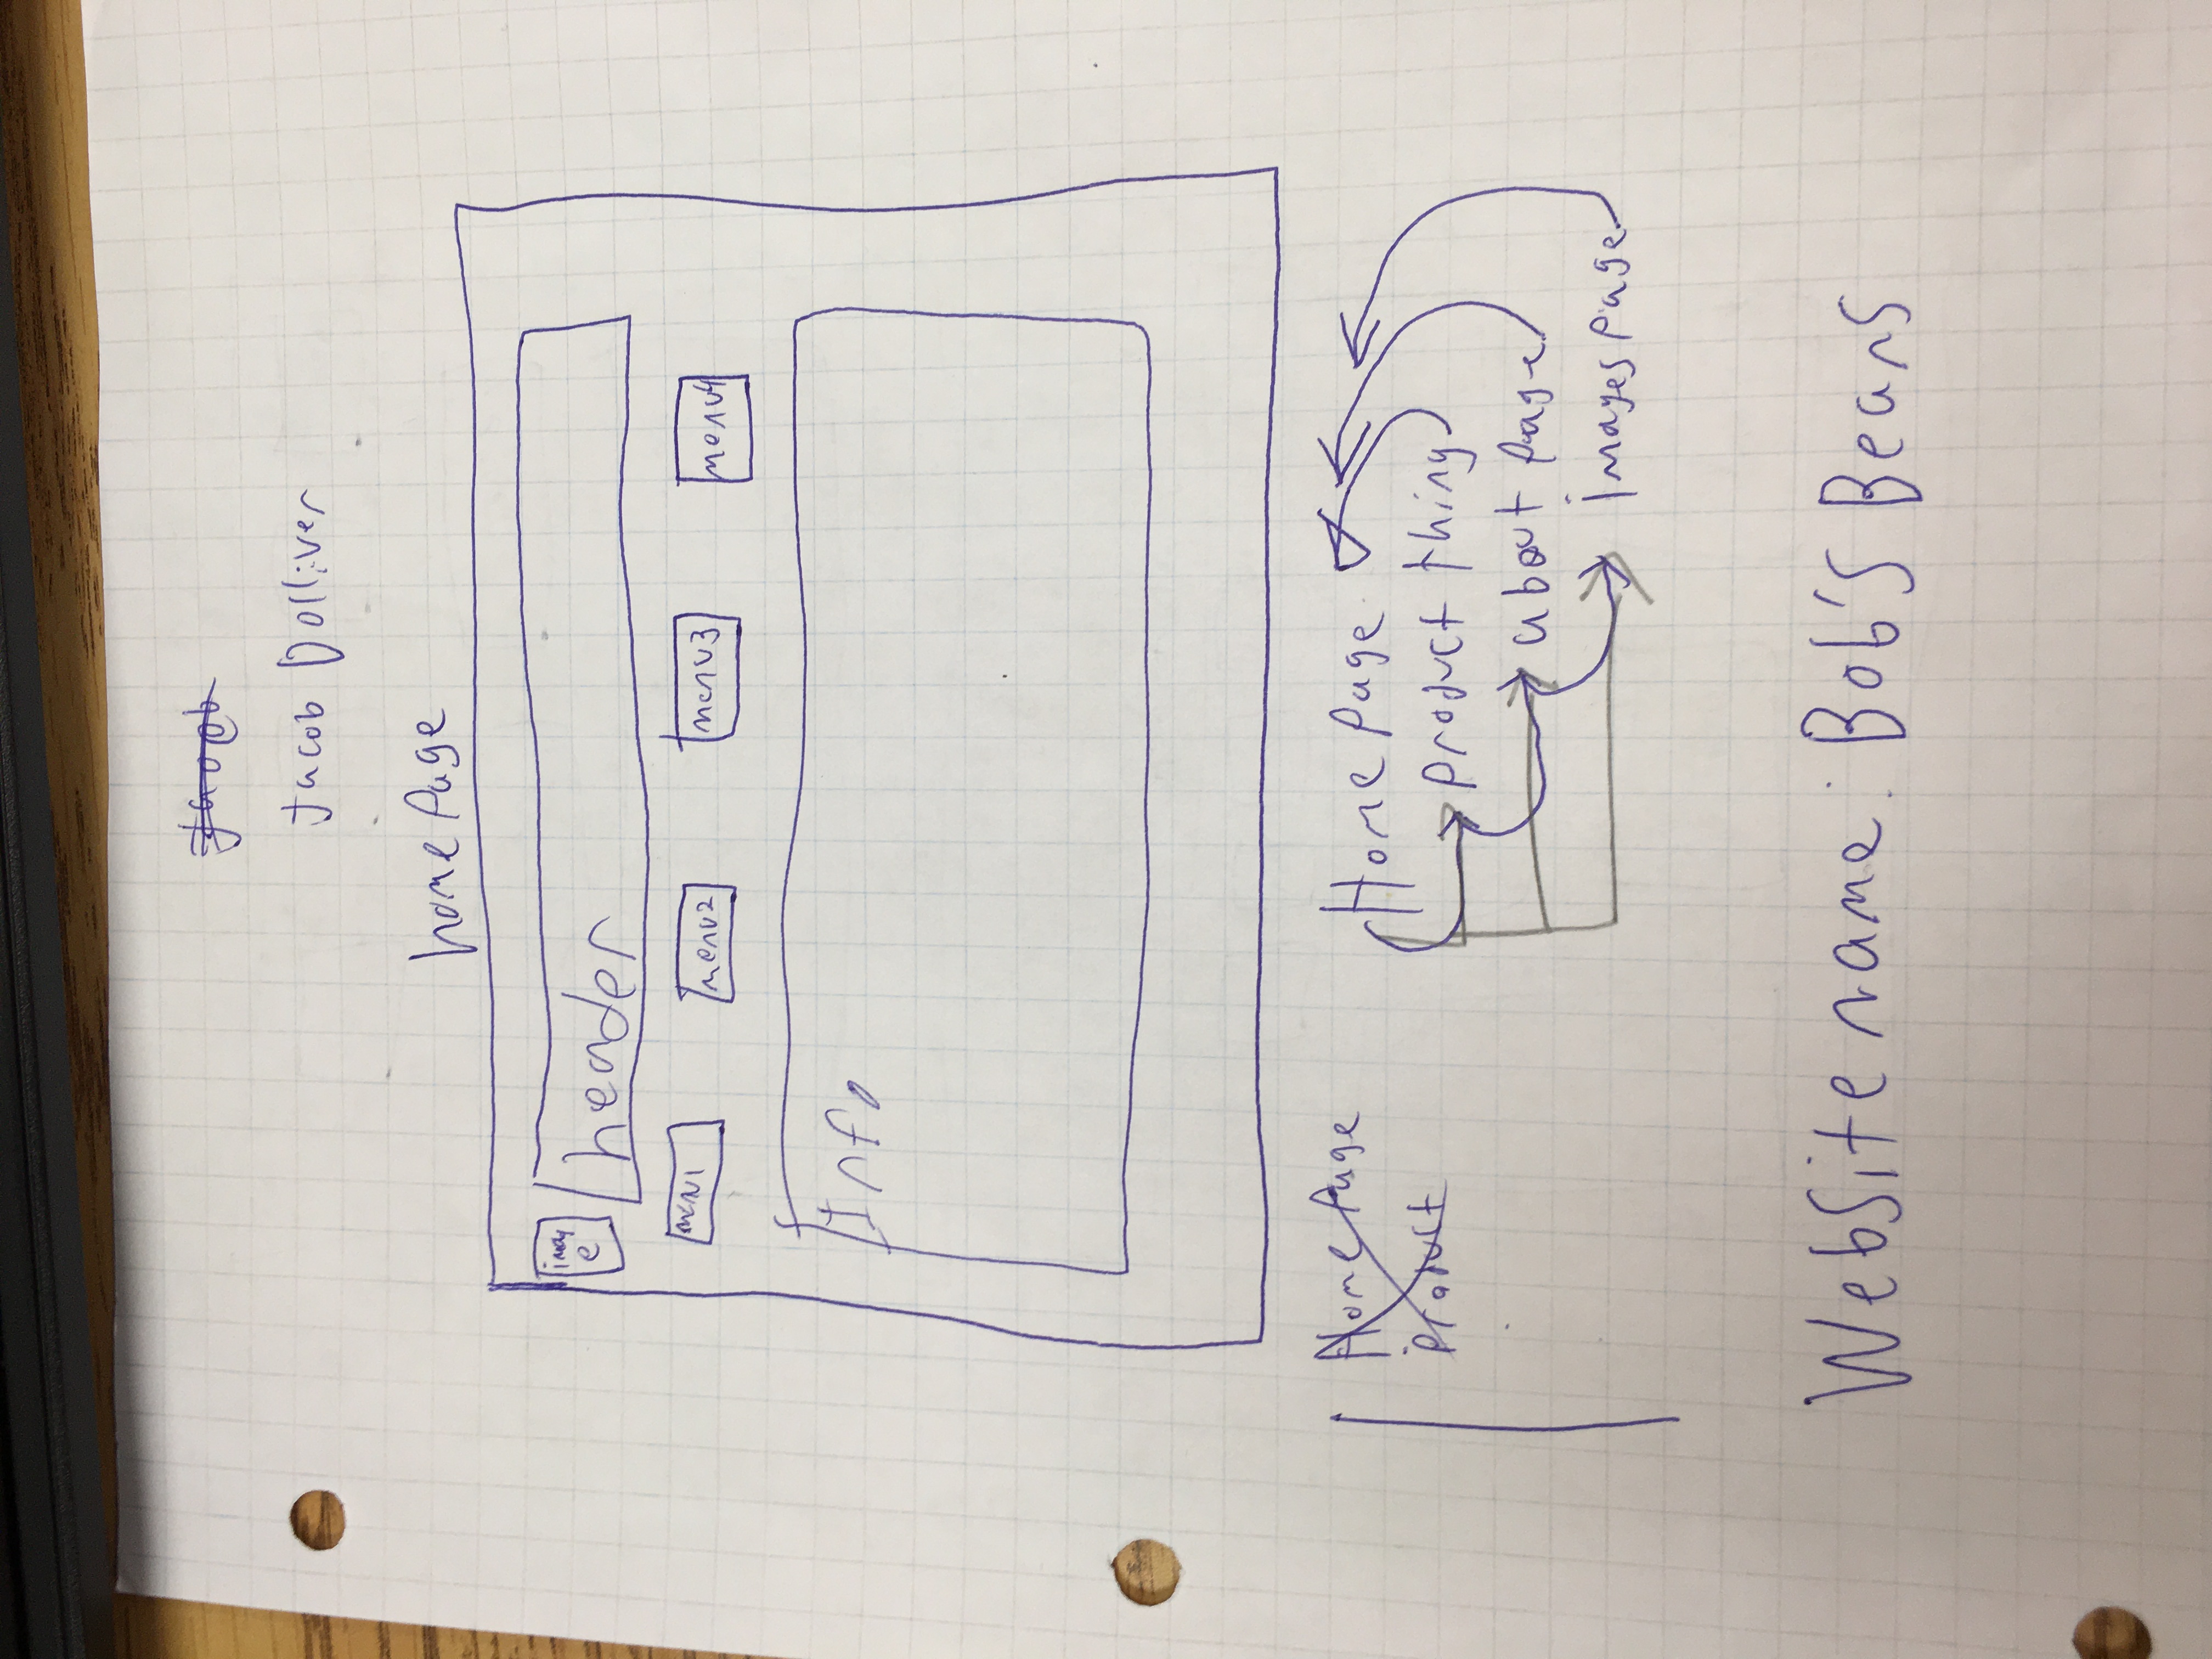 Jacob
Jacob Dolliver
home Page
image
header
menu1
menu2
menu3
menu4
Info
Home Page
Product
Home Page
Product thing
about Page
images Page
Website name: Bob's Beans